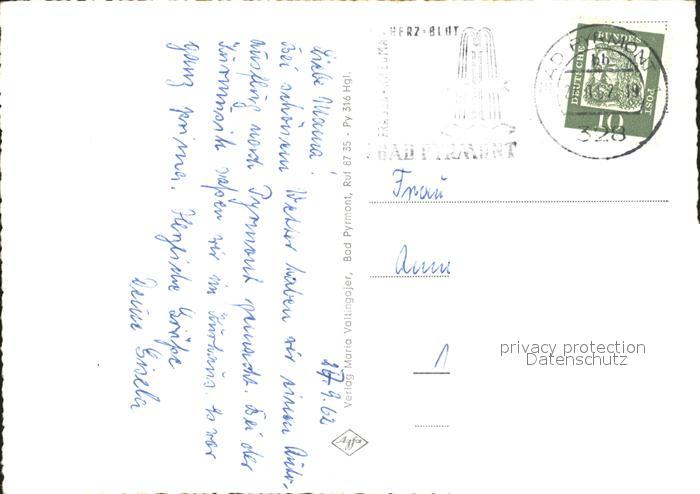 27.9.62
Liebe Mama!
Bei schönem Wetter haben wir einen Auto-
ausflug nach Pyrmont gemacht. Bei der
Kurmusik saßen wir im Kurhaus. Es war
ganz prima. Herzliche Grüße
Deine Gisela
Verlag Maria Valtingojer, Bad Pyrmont, Ruf 87 35 - Py 316 Hgl.
Agfa
HERZ-BLUT
FRAUEN
BAD PYRMONT
BAD PYRMONT
328
DEUTSCHE BUNDESPOST
10
Frau
Anne
1
privacy protection
Datenschutz